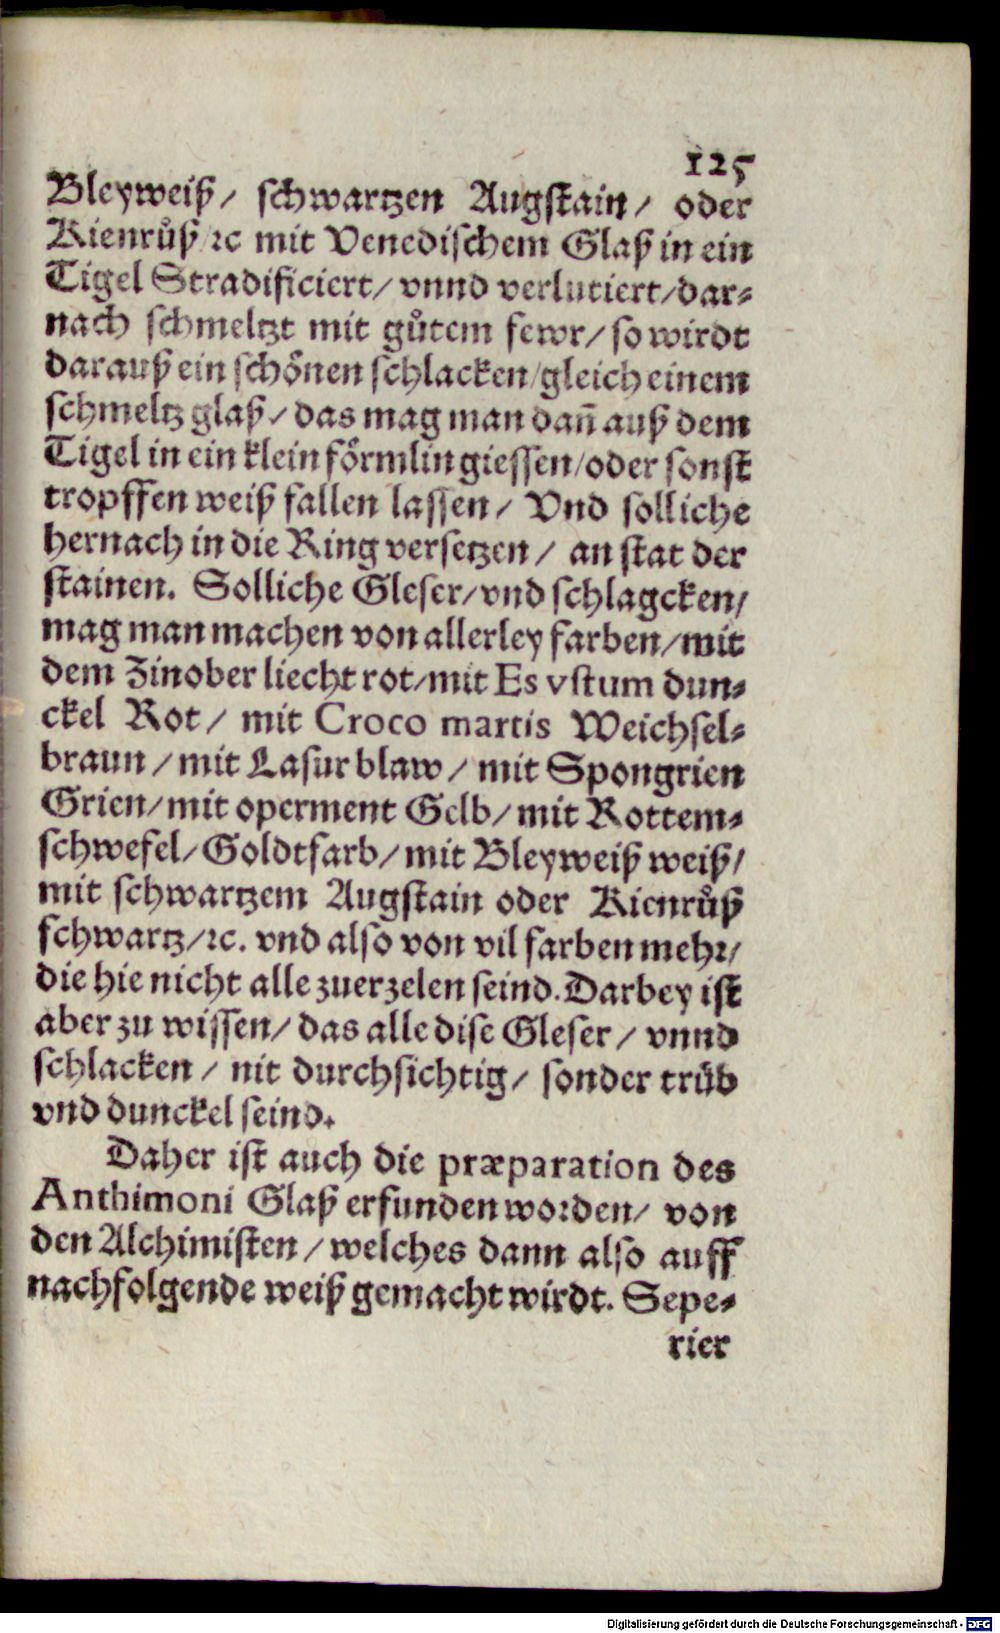 125
Bleyweiß/ schwartzen Augstain/ oder
Kienrůß/ ꝛc mit Venedischem Glaß in ein
Tigel Stradificiert/ vnnd verlutiert/ dar⸗
nach schmeltzt mit gůtem fewr/ so wirdt
darauß ein schönen schlacken/ gleich einem
schmeltz glaß/ das mag man dañ auß dem
Tigel in ein klein förmlin giessen/ oder sonst
tropffen weiß fallen lassen/ Vnd solliche
hernach in die Ring versetzen/ an stat der
stainen. Solliche Gleser/ vnd schlagcken/
mag man machen von allerley farben/ mit
dem Zinober liecht rot/ mit Es vstum dun⸗
ckel Rot/ mit Croco martis Weichsel⸗
braun/ mit Lasur blaw/ mit Spongrien
Grien/ mit operment Gelb/ mit Rottem⸗
schwefel/ Goldtfarb/ mit Bleyweiß weiß/
mit schwartzem Augstain oder Kienrůß
schwartz/ ꝛc. vnd also von vil farben mehr/
die hie nicht alle zuerzelen seind. Darbey ist
aber zu wissen/ das alle dise Gleser/ vnnd
schlacken/ nit durchsichtig/ sonder trüb
vnd dunckel seind.
Daher ist auch die præparation des
Anthimoni Glaß erfunden worden/ von
den Alchimisten/ welches dann also auff
nachfolgende weiß gemacht wirdt. Sepe⸗
rier
Digitalisierung gefördert durch die Deutsche Forschungsgemeinschaft - DFG